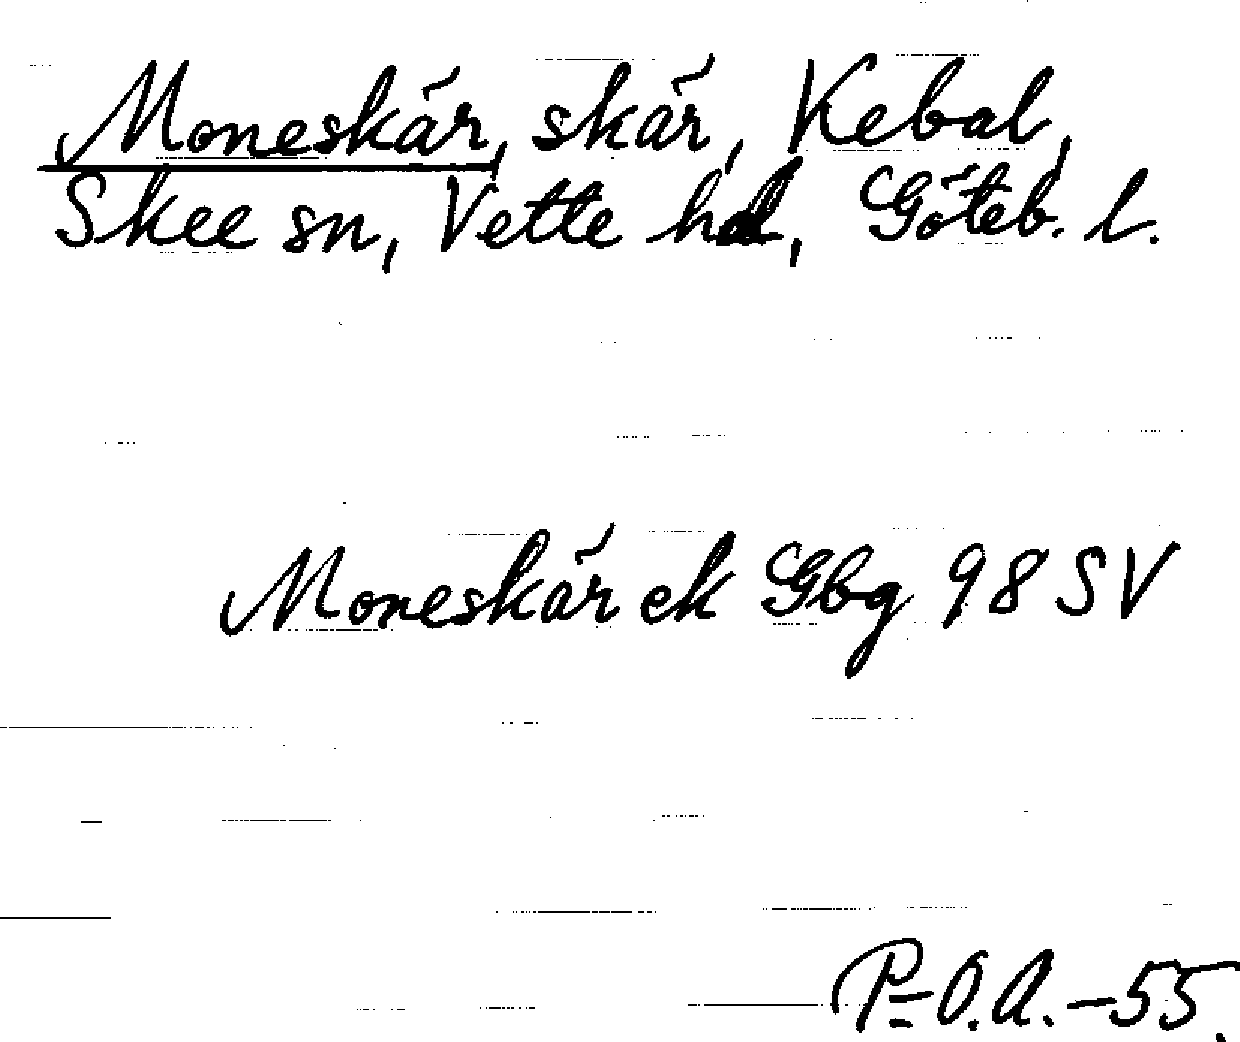 Moneskär, skär, Kebal,
Skee sn, Vette hd, Göteb. l.
Moneskär ek Gbg 98 SV
P-O.A.-55.